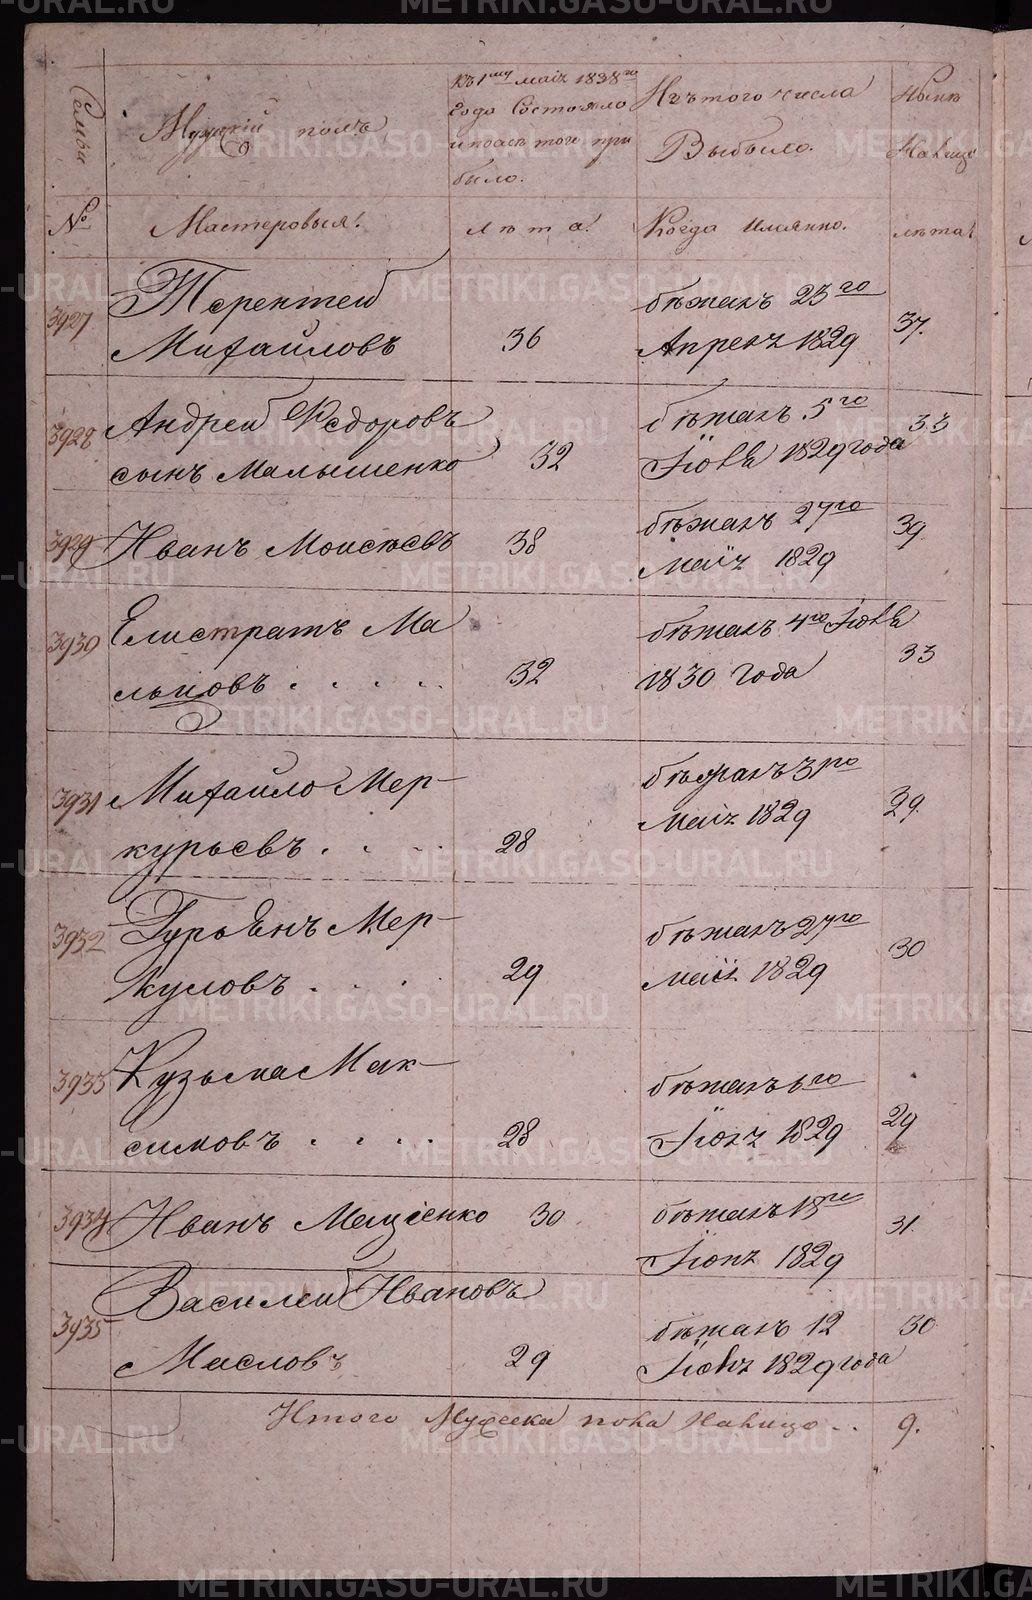 Семьи
Мужескій полъ
Къ 1му маія 1838го
года состояло
и послѣ того при
было.
Изъ того числа
Выбыло.
Нынѣ
На лицо
№
Мастеровыя.
лѣта.
Когда имянно.
лѣта.
3927
Терентей
Михайловъ
36
бѣжалъ 23го
Апреля 1829
37.
3928
Андрей Федоровъ
сынъ Малышенко
32
бѣжалъ 5го
Іюля 1829 года
33
3929
Иванъ Моисѣевъ
38
бѣжалъ 27го
маія 1829
39.
3930
Елистратъ Ма
льцовъ . . . . .
32
бѣжалъ 4го Іюля
1830 года
33
3931
Михайло Мер-
курьевъ . . . .
28
бѣжалъ 3го
Маія 1829
29.
3932
Гурьянъ Мер-
куловъ . . . .
29
бѣжалъ 27го
маія 1829
30
3933
Кузьма Мак-
симовъ . . . .
28
бѣжалъ 6го
Іюня 1829
29
3934
Иванъ Мащенко
30
бѣжалъ 18го
Іюня 1829
31.
3935
Василей Ивановъ
Масловъ
29
бѣжалъ 12
Іюня 1829 года
30
Итого Мужска пола на лицо . .
9.
METRIKI.GASO-URAL.RU